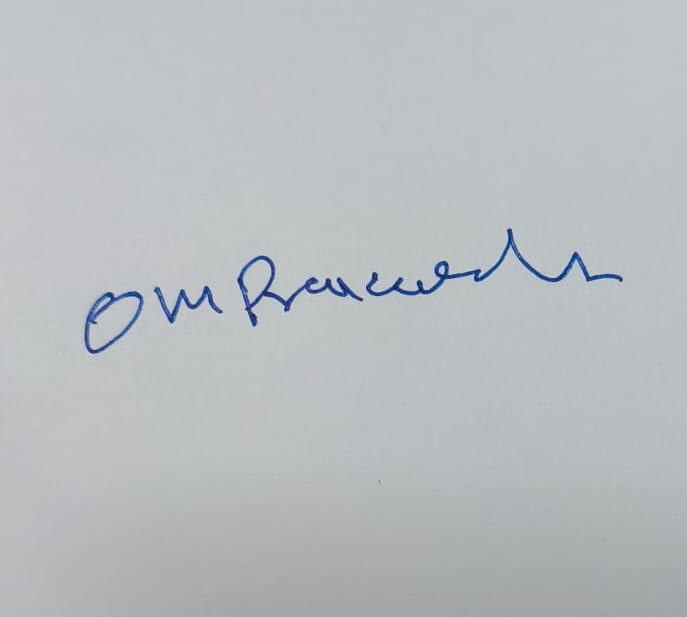 OM Prakash